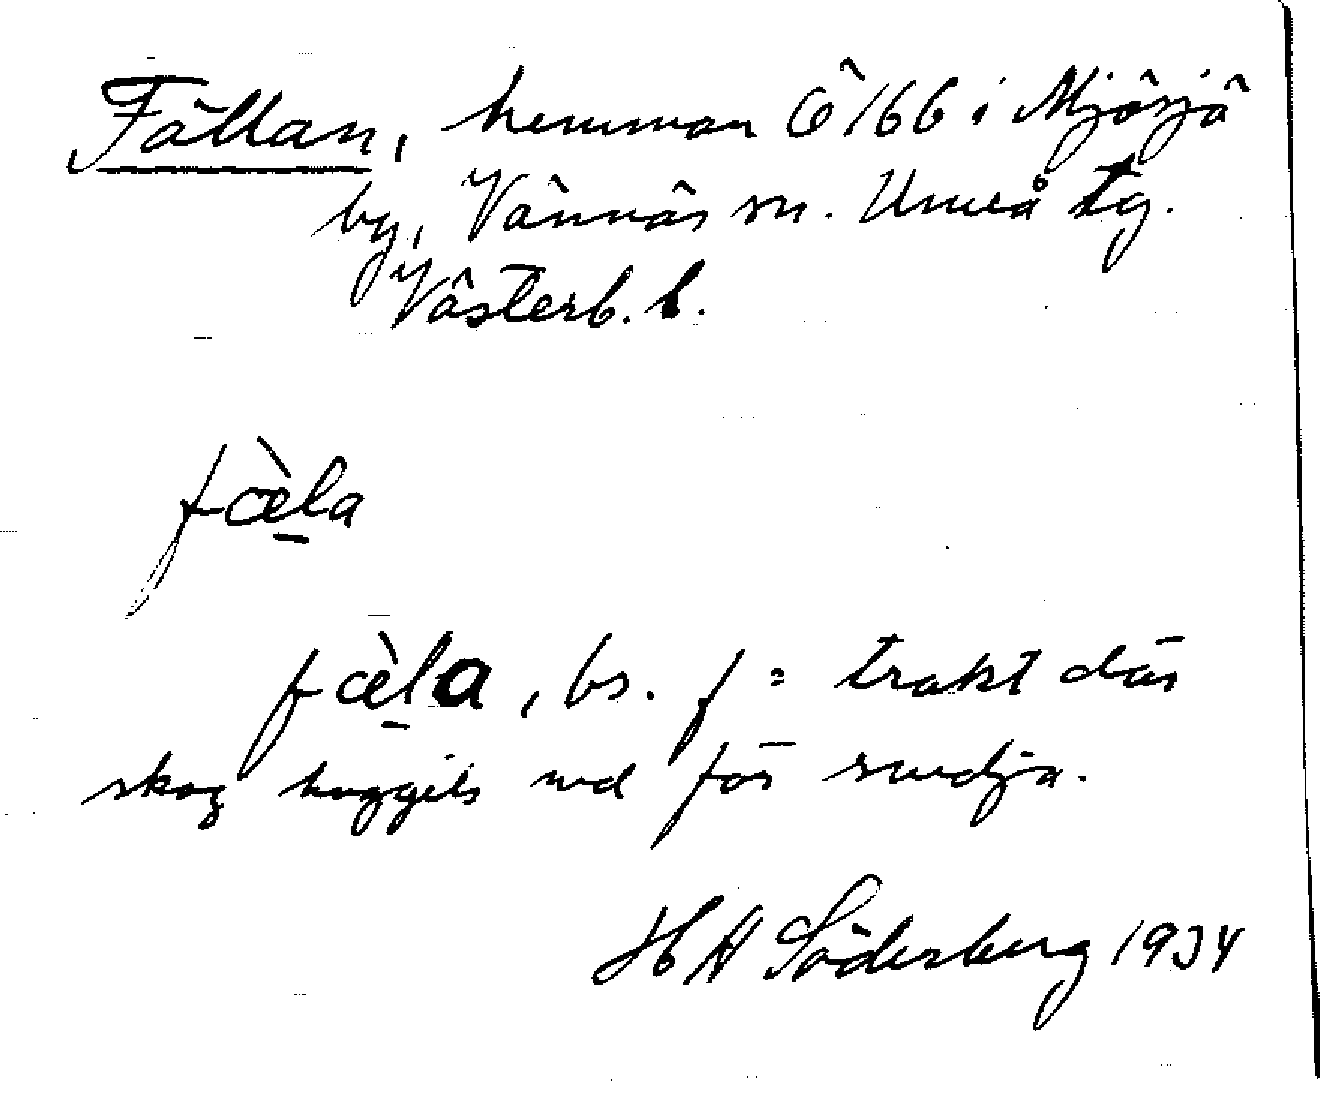 Fällan, hemman Ö166 i Mjösjö
by, Vännäs sn. Umeå tg.
Västerb. l.
fæ̀la
fæ̀la, bs. f = trakt där
skog huggits ned för svedja.
H A Söderberg 1934